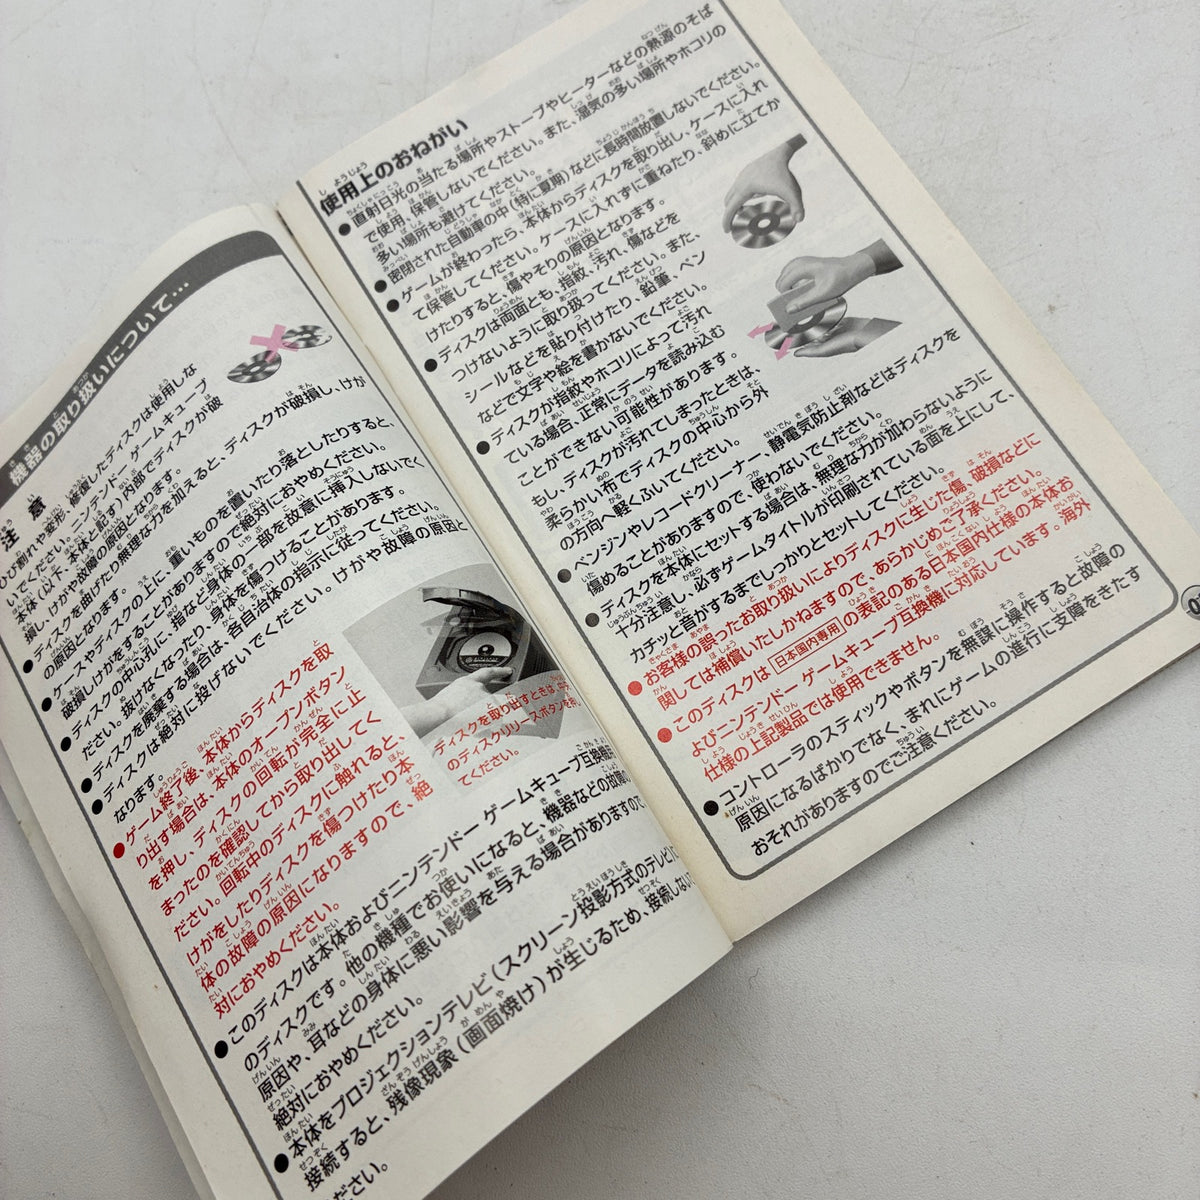 機器の取り扱いについて…
注意
ひび割れや変形・修理したディスクは使用しな
いでください。ニンテンドー ゲームキューブ
本体(以下、本体と記す)内部でディスクが破
損し、けがや故障の原因となります。
●ディスクを曲げたり無理な力を加えると、ディスクが破損し、けが
の原因となります。
●ケースやディスクの上に、重いものを置いたり落としたりすると、
破損しけがをすることがありますので絶対におやめください。
●ディスクの中心孔に、指など身体の一部を故意に挿入しないでく
ださい。抜けなくなったり、身体を傷つけることがあります。
●ディスクを廃棄する場合は、各自治体の指示に従ってください。
●ディスクは絶対に投げないでください。けがや故障の原因と
なります。
●ゲーム終了後、本体からディスクを取
り出す場合は、本体のオープンボタン
を押し、ディスクの回転が完全に止
まったのを確認してから取り出して
ください。回転中のディスクに触れると、
けがをしたりディスクを傷つけたり本
体の故障の原因になりますので、絶
対におやめください。
ディスクを取り出すときは、中央
のディスクリリースボタンを押し
てください。
●このディスクは本体およびニンテンドー ゲームキューブ互換機専用
のディスクです。他の機種でお使いになると、機器などの故障の
原因や、耳などの身体に悪い影響を与える場合がありますので
絶対におやめください。
●本体をプロジェクションテレビ(スクリーン投影方式のテレビ)に
接続すると、残像現象(画面焼け)が生じるため、接続しない
ください。
使用上のおねがい
●直射日光の当たる場所やストーブやヒーターなどの熱源のそば
で使用、保管しないでください。また、湿気の多い場所やホコリの
多い場所も避けてください。
●密閉された自動車の中(特に夏期)などに長時間放置しないでください。
●ゲームが終わったら、本体からディスクを取り出し、ケースに入れ
て保管してください。ケースに入れずに重ねたり、斜めに立てか
けたりすると、傷やそりの原因となります。
●ディスクは両面とも、指紋、汚れ、傷などを
つけないように取り扱ってください。また、
シールなどを貼り付けたり、鉛筆、ペン
などで文字や絵を書かないでください。
●ディスクが指紋やホコリによって汚れ
ている場合、正常にデータを読み込む
ことができない可能性があります。
もし、ディスクが汚れてしまったときは、
柔らかい布でディスクの中心から外
の方向へ軽くふいてください。
●ベンジンやレコードクリーナー、静電気防止剤などはディスクを
傷めることがありますので、使わないでください。
●ディスクを本体にセットする場合は、無理な力が加わらないように
十分注意し、必ずゲームタイトルが印刷されている面を上にして、
カチッと音がするまでしっかりとセットしてください。
●お客様の誤ったお取り扱いによりディスクに生じた傷、破損などに
関しては補償いたしかねますので、あらかじめご了承ください。
●このディスクは 日本国内専用 の表記のある日本国内仕様の本体お
よびニンテンドー ゲームキューブ互換機に対応しています。海外
仕様の上記製品では使用できません。
●コントローラのスティックやボタンを無謀に操作すると故障の
原因になるばかりでなく、まれにゲームの進行に支障をきたす
おそれがありますのでご注意ください。